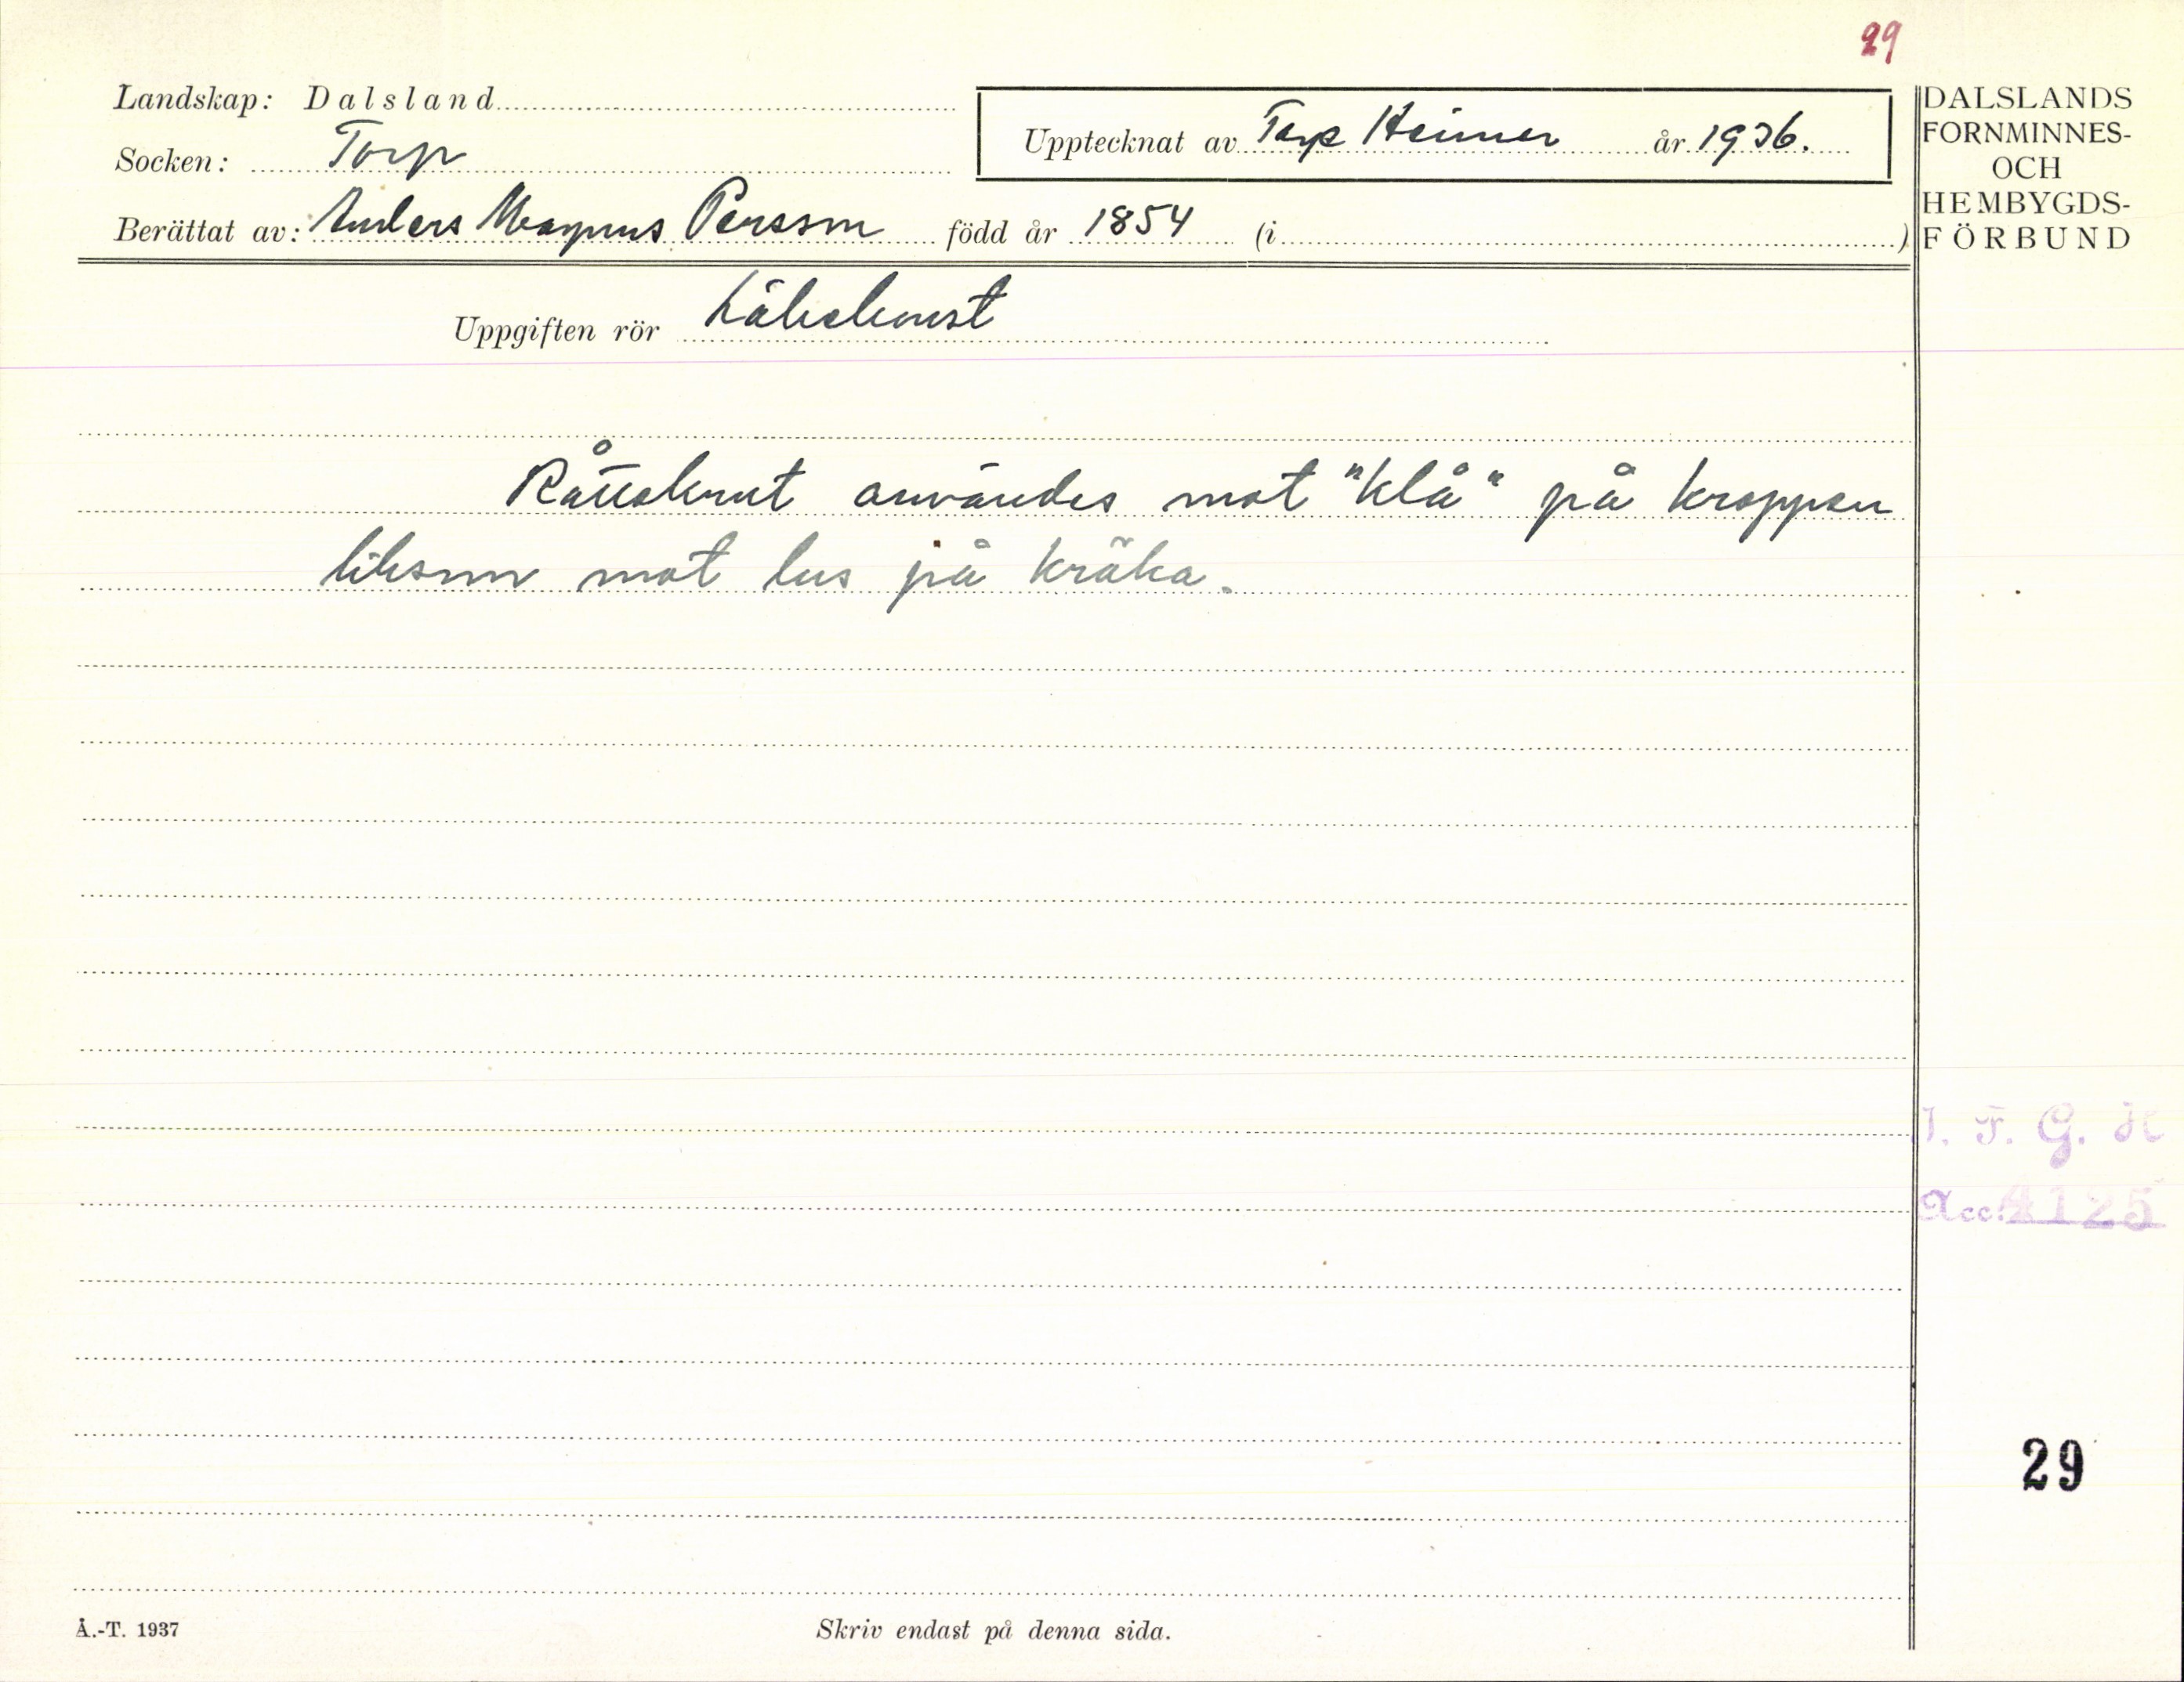 29
Landskap: Dalsland
Socken: Torp
Upptecknat av Tage Heimer år 1936.
Berättat av: Anders Magnus Persson född år 1854 (i )
DALSLANDS
FORNMINNES-
OCH
HEMBYGDS-
FÖRBUND
Uppgiften rör Läkekonst
användes mot "klå" på kroppen
liksom mot lus på kräka.
I. F. G. H
Acc. 4125
29
Å.-T. 1937
Skriv endast på denna sida.